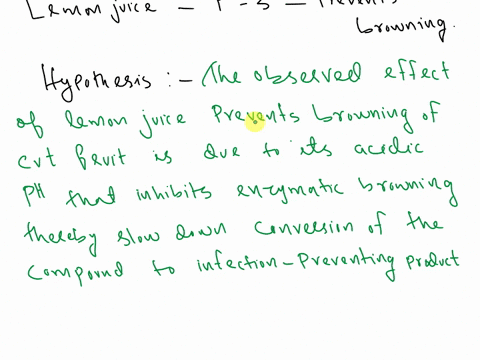 Lemon juice – – Prevents
browning.
Hypothesis :– The observed effect
of lemon juice Prevents browning of
cut fruit is due to its acedic
PH that inhibits enzymatic browning
thereby slow down conversion of the
compound to infection-Preventing product